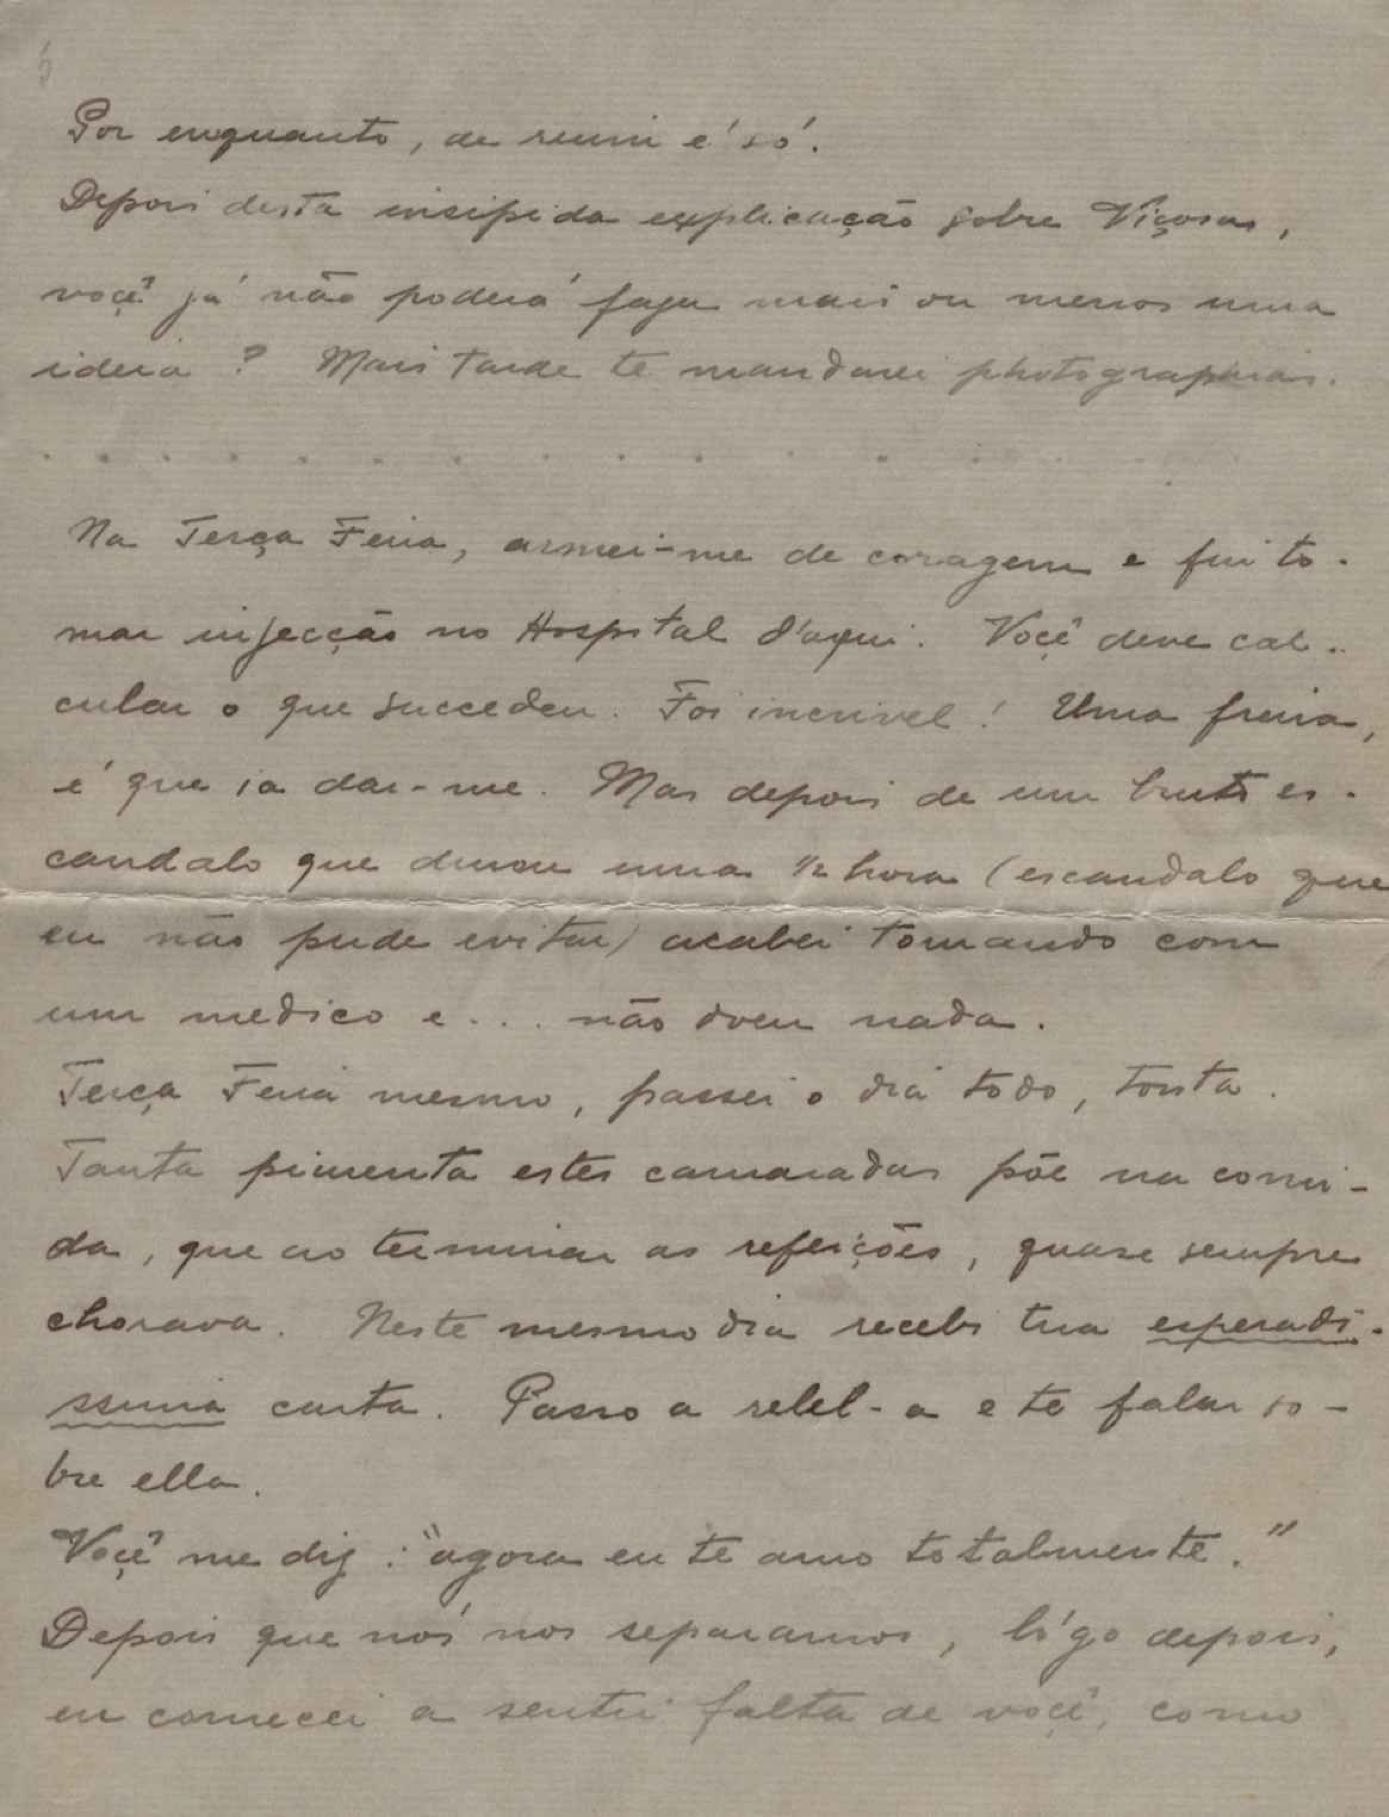 6
Por enquanto, de ruim é só.
Depois desta insipida explicação sobre Viçosa,
voçê já não poderá fazer mais ou menos uma
ideia? Mais tarde te mandarei photographias.
. . . . . . . . . . . . . . . .
Na Terça Feira, armei-me de coragem e fui to-
mar injecção no Hospital d'aqui. Voçê deve cal-
cular o que succedeu. Foi incrivel! Uma freira,
é que ia dar-me. Mas depois de um bruto es-
candalo que durou uma 1/2 hora (escandalo que
eu não pude evitar) acabei tomando com
um medico e... não doeu nada.
Terça Feira mesmo, passei o dia todo, tonta.
Tanta pimenta estes camaradas põe na comi-
da, que ao terminar as refeições, quase sempre
chorava. Neste mesmo dia recebi tua esperadi-
ssima carta. Passo a relel-a e te falar so-
bre ella.
Voçê me diz: "agora eu te amo totalmente."
Depois que nós nos separamos, lógo depois,
eu comecei a sentir falta de voçê, como